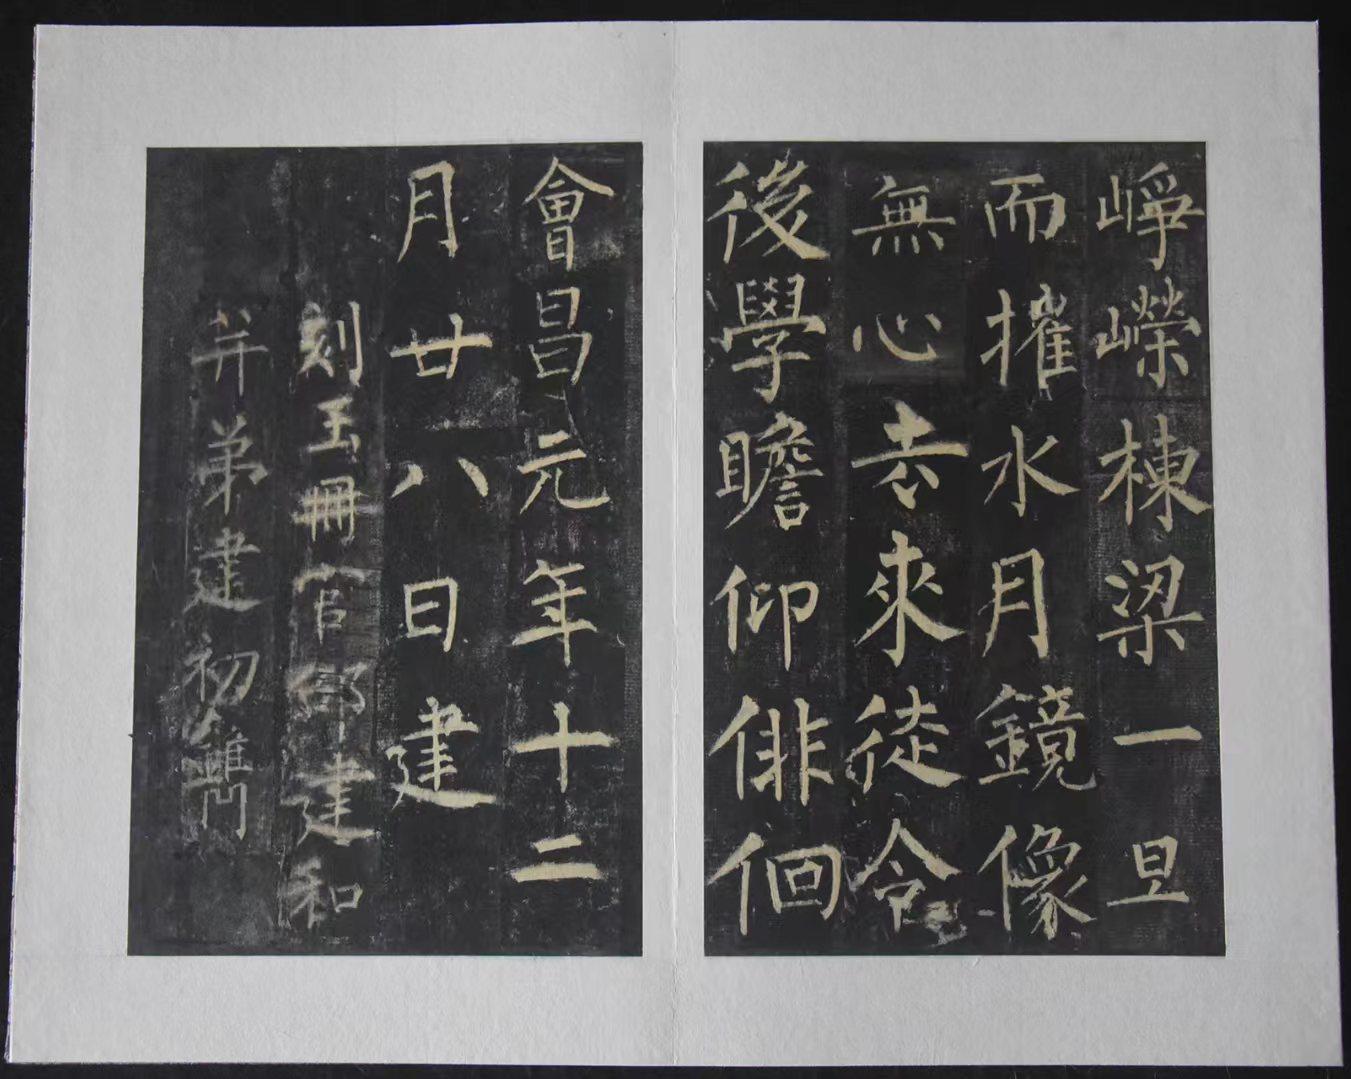 崢嶸棟梁一旦
而摧水月鏡像
無心去來徒令
後學瞻仰徘徊
會昌元年十二
月廿八日建
刻玉冊官邵建和
并弟建初鐫